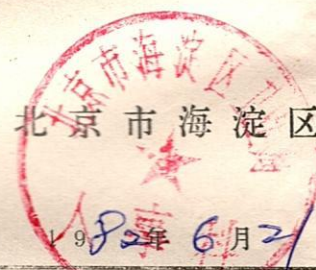 北京市海淀区
北京市海淀区
人事科
1982年6月21